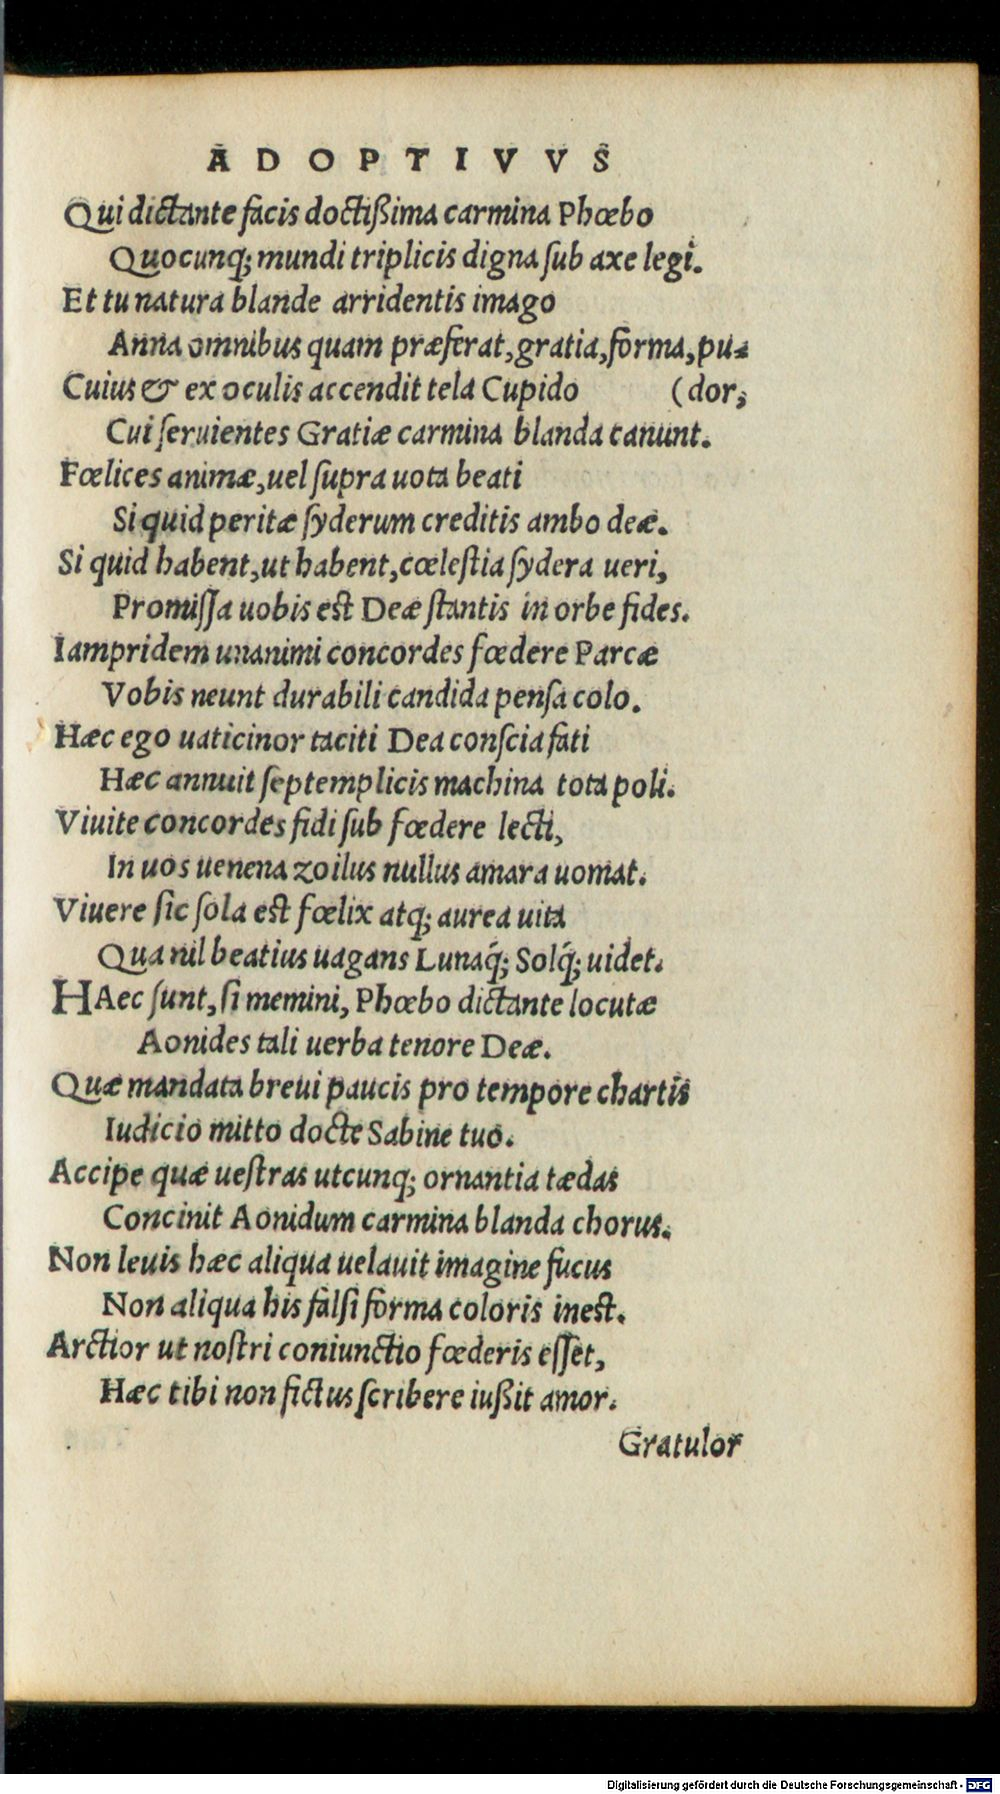 ADOPTIVVS
Qui dictante facis doctißima carmina Phœbo
Quocunq; mundi triplicis digna ſub axe legi.
Et tu natura blande arridentis imago
Anna omnibus quam præferat, gratia, forma, pu-
Cuius & ex oculis accendit tela Cupido (dor,
Cui ſeruientes Gratiæ carmina blanda canunt.
Fœlices animæ, uel ſupra uota beati
Si quid peritæ ſyderum creditis ambo deæ.
Si quid habent, ut habent, cœleſtia ſydera ueri,
Promiſſa uobis eſt Deæ ſtantis in orbe fides.
Iampridem unanimi concordes fœdere Parcæ
Vobis neunt durabili candida penſa colo.
Hæc ego uaticinor taciti Dea conſcia fati
Hæc annuit ſeptemplicis machina tota poli.
Viuite concordes fidi ſub fœdere lecti,
In uos uenena zoilus nullus amara uomat.
Viuere ſic ſola eſt fœlix atq; aurea uita
Qua nil beatius uagans Lunaq́; Solq́; uidet.
HAec ſunt, ſi memini, Phœbo dictante locutæ
Aonides tali uerba tenore Deæ.
Quæ mandata breui paucis pro tempore chartis
Iudicio mitto docte Sabine tuo.
Accipe quæ ueſtras utcunq; ornantia tædas
Concinit Aonidum carmina blanda chorus.
Non leuis hæc aliqua uelauit imagine fucus
Non aliqua his falſi forma coloris ineſt.
Arctior ut noſtri coniunctio fœderis eſſet,
Hæc tibi non fictus ſcribere iußit amor.
Gratulor
Digitalisierung gefördert durch die Deutsche Forschungsgemeinschaft - DFG